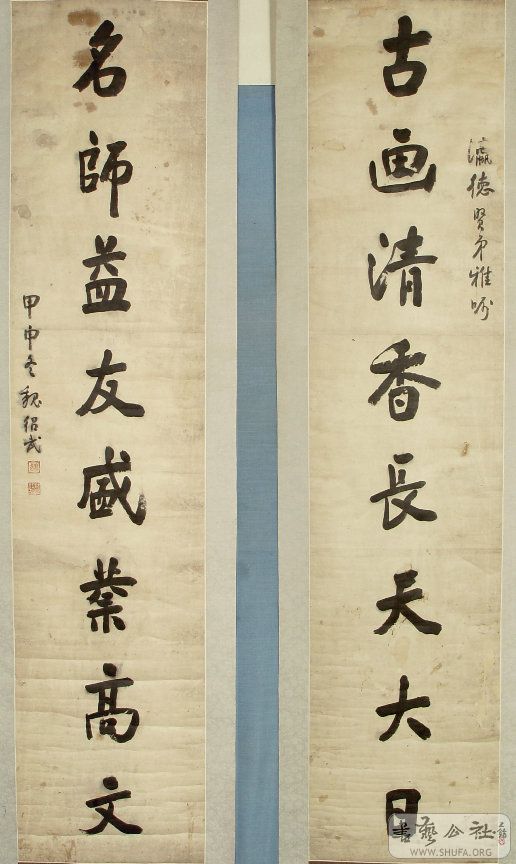 古画清香長天大日
瀛德賢弟雅吟
名師益友盛業高文
甲申冬魏紹武
書藝公社
WWW.SHUFA.ORG